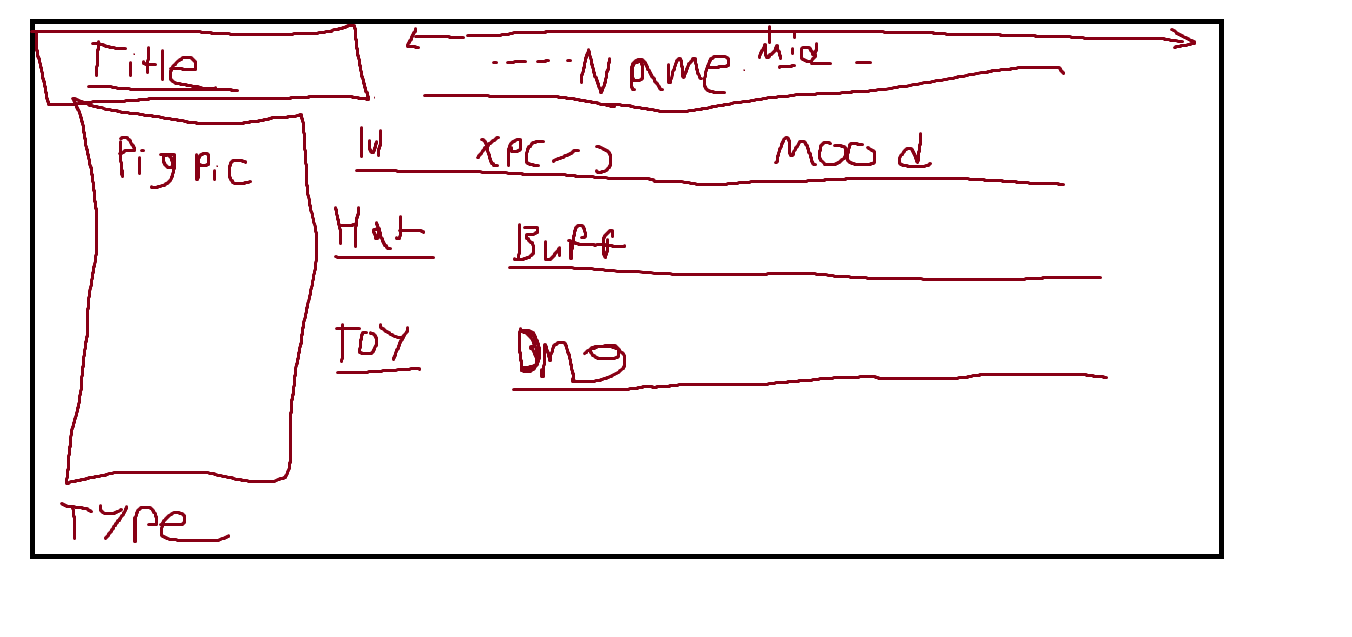 Title
Name mid
Pig Pic
lvl XP(-) Mood
Hat Buff
TOY Dmg
TYPe